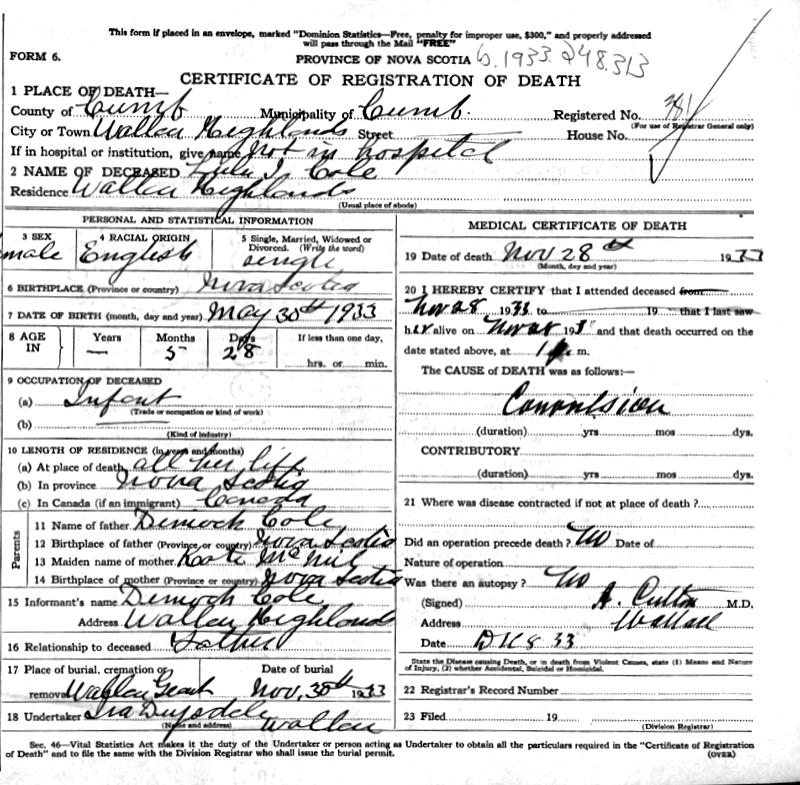 This form if placed in an envelope, marked "Dominion Statistics—Free, penalty for improper use, $300," and properly addressed
will pass through the Mail "FREE"
FORM 6.
PROVINCE OF NOVA SCOTIA 1933
CERTIFICATE OF REGISTRATION OF DEATH
1 PLACE OF DEATH—
County of Cumb Municipality of Cumb. Registered No. 381
(For use of Registrar General only)
City or Town Wallace Highlands Street House No.
If in hospital or institution, give name not in hospital
2 NAME OF DECEASED Lulu I. Cole
Residence Wallace Highlands
(Usual place of abode)
PERSONAL AND STATISTICAL INFORMATION
3 SEX 4 RACIAL ORIGIN 5 Single, Married, Widowed or Divorced. (Write the word)
male English single
6 BIRTHPLACE (Province or country) Nova Scotia
7 DATE OF BIRTH (month, day and year) May 30th 1933
8 AGE IN Years Months Days If less than one day,
— 5 28 hrs. or min.
9 OCCUPATION OF DECEASED
(a) Infant
(Trade or occupation or kind of work)
(b)
(Kind of industry)
10 LENGTH OF RESIDENCE (in years and months)
(a) At place of death all her life
(b) In province Nova Scotia
(c) In Canada (if an immigrant) Canada
Parents
11 Name of father Dimock Cole
12 Birthplace of father (Province or country) Nova Scotia
13 Maiden name of mother Kate
14 Birthplace of mother (Province or country) Nova Scotia
15 Informant's name Dimock Cole
Address Wallace Highlands
16 Relationship to deceased Father
17 Place of burial, cremation or removal Date of burial
Wallace Nov, 30th 1933
18 Undertaker Ira Wallace
(Name and address)
MEDICAL CERTIFICATE OF DEATH
19 Date of death Nov 28th 1933
(Month, day and year)
20 I HEREBY CERTIFY that I attended deceased from
Nov 28 1933 to 19 that I last saw
her alive on Nov 28 193 and that death occurred on the
date stated above, at m.
The CAUSE of DEATH was as follows:—
Convulsion
(duration) yrs mos dys.
CONTRIBUTORY
(duration) yrs mos dys.
21 Where was disease contracted if not at place of death?
Did an operation precede death? No Date of
Nature of operation
Was there an autopsy? No
(Signed) M.D.
Address Wallace
Date Dec 8 33
State the Disease causing Death, or in death from Violent Causes, state (1) Means and Nature
of Injury, (2) whether Accidental, Suicidal or Homicidal.
22 Registrar's Record Number
23 Filed 19
(Division Registrar)
Sec. 46—Vital Statistics Act makes it the duty of the Undertaker or person acting as Undertaker to obtain all the particulars required in the "Certificate of Registration
of Death" and to file the same with the Division Registrar who shall issue the burial permit. (OVER)